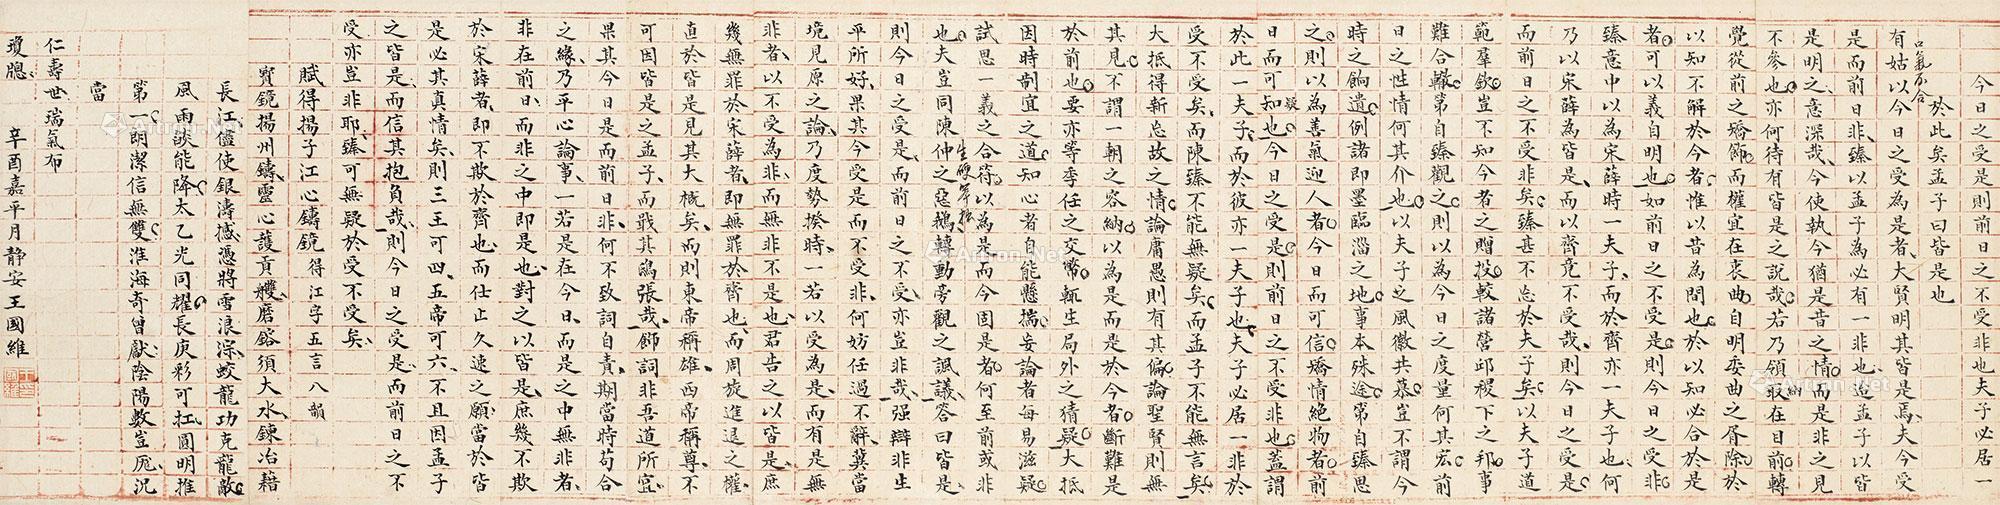 今日之受是則前日之不受非也夫子必居一
於此矣孟子曰皆是也
口氣不合
有姑以今日之受為是者大賢明其皆是焉夫今受
是而前日非臻以孟子為必有一非也迨孟子以皆
是明之意深哉今使執今猶是昔之情而是非之見
不參也亦何待有皆是之說哉若乃領取在目前轉
覺從前之矯飾而權宜在衷曲自明委曲之胥除於
以知不解於今者惟以昔為問也於以知必合於是
者可以義自明也如前日之不受是則今日之受非
臻意中以為宋薛時一夫子而於齊亦一夫子也何
乃以宋薛為皆是而以齊竟不受哉則今日之受是
而前日之不受非矣臻甚不忘於夫子矣以夫子道
範羣欽豈不知今者之贈投較諸營邱稷下之邦事
難合轍第自臻觀之則以為今日之度量何其宏前
日之性情何其介也以夫子之風徽共慕豈不謂今
時之餉遺例諸即墨臨淄之地事本殊途第自臻思
之則以為善氣迎人者今日而可信矯情絕物者前
日而可知也今日之受是則前日之不受非也蓋謂
疑
於此一夫子而於彼亦一夫子也夫子必居一非於
受不受矣而陳臻不能無疑矣而孟子不能無言矣
大抵得新忘故之情論庸愚則有其偏論聖賢則無
其見不謂一朝之容納以為是而是於今者斷難是
於前也要亦等季任之交幣輒生局外之猜疑大抵
因時制宜之道知心者自能懸揣妄論者每易滋疑
試思一義之合符以為是而今固是者何至前或非
也夫豈同陳仲之惡鵝轉動旁觀之諷議答曰皆是
則今日之受是而前日之不受亦豈非哉强辯非生
平所好果其今受是而不受非何妨任過不辭冀當
境見原之論乃度勢揆時一若以受為是而有是無
非者以不受為非而無非不是也君告之以皆是庶
幾無罪於宋薛者即無罪於齊也而周旋進退之權
直於皆是見其大槪矣而則東帝稱雄西帝稱尊不
可因皆是之孟子而戢其鴟張哉飾詞非吾道所宜
果其今日是而前日非何不致詞自責期當時苟合
之緣乃平心論事一若是在今日而是之中無非者
非在前日而非之中即是也對之以皆是庶幾不欺
於宋薛者即不欺於齊也而仕止久速之願當於皆
是必其真情矣則三王可四五帝可六不且因孟子
之皆是而信其抱負哉則今日之受是而前日之不
受亦豈非耶臻可無疑於受不受矣
賦得揚子江心鑄鏡 得江字五言八韻
寶鏡揚州鑄靈心護貢艭磨鎔須大水鍊冶藉
長江儘使銀濤撼憑將雪浪淙蛟龍功克龍敵
風雨談能降太乙光同耀長庚彩可扛圓明推
第一明潔信無雙淮海奇曾獻陰陽數豈厖況
當
仁壽世瑞氣布
瓊牕 辛酉嘉平月靜安王國維